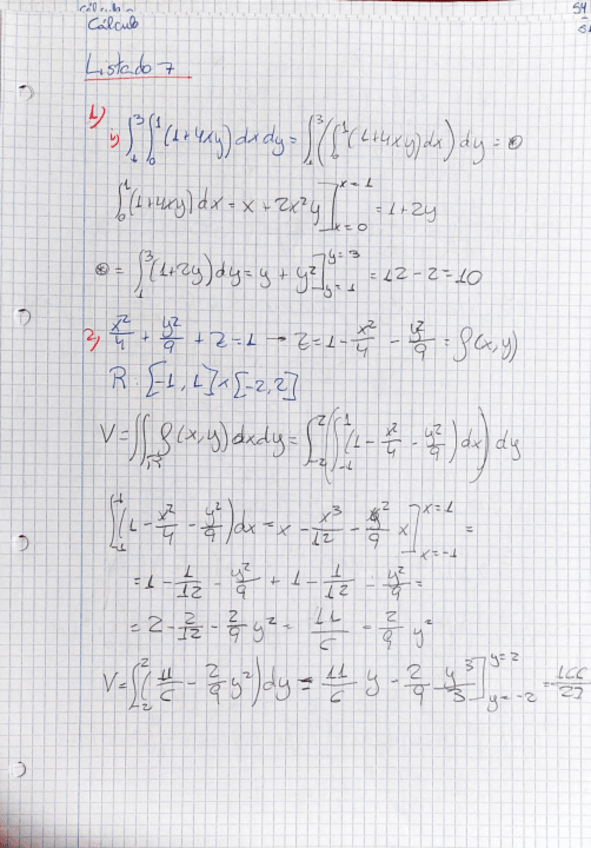 Cálculo
54
Cálculo
Listado 7
1)
i) ∫₁³ ∫₀¹ (1+4xy) dx dy = ∫₁³ (∫₀¹ (1+4xy) dx) dy = ⊛
∫₀¹ (1+4xy) dx = x + 2x²y ]ₓ₌₀ˣ⁼¹ = 1+2y
⊛ = ∫₁³ (1+2y) dy = y + y² ]_{y=1}^{y=3} = 12 - 2 = 10
2) x²/4 + y²/9 + z = 1 → z = 1 - x²/4 - y²/9 = f(x,y)
R: [-1, 1] x [-2, 2]
V = ∬_R f(x,y) dx dy = ∫₋₂² (∫₋₁¹ (1 - x²/4 - y²/9) dx) dy
∫₋₁¹ (1 - x²/4 - y²/9) dx = x - x³/12 - y²/9 x ]_{x=-1}^{x=1} =
= 1 - 1/12 - y²/9 + 1 - 1/12 - y²/9 =
= 2 - 2/12 - 2/9 y² = 11/6 - 2/9 y²
V = ∫₋₂² (11/6 - 2/9 y²) dy = 11/6 y - 2/9 y³/3 ]_{y=-2}^{y=2} = 166/27